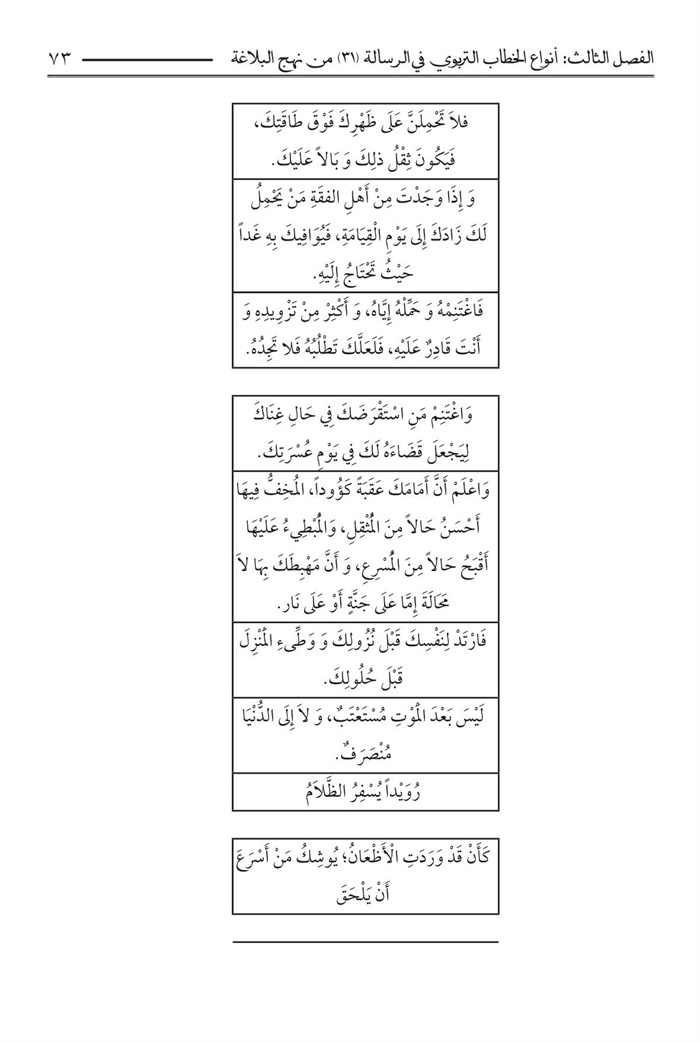 الفصل الثالث: أنواع الخطاب التربوي في الرسالة (٣١) من نهج البلاغة ٧٣
فلاَ تَحْمِلَنَّ عَلَى ظَهْرِكَ فَوْقَ طَاقَتِكَ،
فَيَكُونَ ثِقْلُ ذلِكَ وَ بَالاً عَلَيْكَ.
وَ إِذَا وَجَدْتَ مِنْ أَهْلِ الفقَةِ مَنْ يَحْمِلُ
لَكَ زَادَكَ إِلَى يَوْمِ الْقِيَامَةِ، فَيُوَافِيكَ بِهِ غَداً
حَيْثُ تَحْتَاجُ إِلَيْهِ.
فَاغْتَنِمْهُ وَ حَمِّلْهُ إِيَّاهُ، وَ أَكْثِرْ مِنْ تَزْوِيدِهِ وَ
أَنْتَ قَادِرٌ عَلَيْهِ، فَلَعَلَّكَ تَطْلُبُهُ فَلا تَجِدُهُ.
وَاغْتَنِمْ مَنِ اسْتَقْرَضَكَ فِي حَالِ غِنَاكَ
لِيَجْعَلَ قَضَاءَهُ لَكَ فِي يَوْمِ عُسْرَتِكَ.
وَاعْلَمْ أَنَّ أَمَامَكَ عَقَبَةً كَؤُوداً، الُمخِفُّ فِيهَا
أَحْسَنُ حَالاً مِنَ الُمْثقِلِ، وَالُمْبْطِيءُ عَلَيْهَا
أَقْبَحُ حَالاً مِنَ الُمسْرِعِ، وَ أَنَّ مَهْبِطَكَ بِهَا لاَ
مَحَالَةَ إِمَّا عَلَى جَنَّةٍ أَوْ عَلَى نَار.
فَارْتَدْ لِنَفْسِكَ قَبْلَ نُزُولِكَ وَ وَطِّىءِ الْمَنْزِلَ
قَبْلَ حُلُولِكَ.
لَيْسَ بَعْدَ الْمَوْتِ مُسْتَعْتَبٌ، وَ لاَ إِلَى الدُّنْيَا
مُنْصَرَفٌ.
رُوَيْداً يُسْفِرُ الظَّلاَمُ
كَأَنْ قَدْ وَرَدَتِ الْأَظْعَانُ؛ يُوشِكُ مَنْ أَسْرَعَ
أَنْ يَلْحَقَ